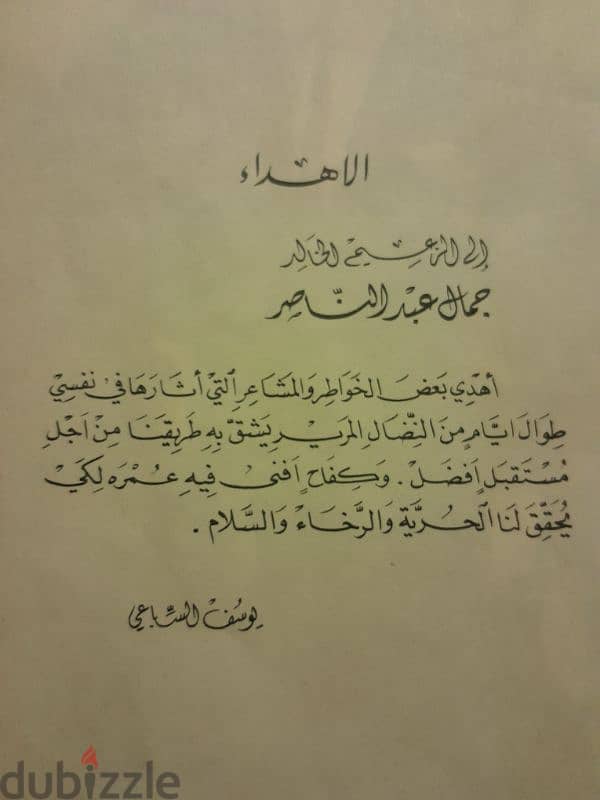 الاهداء
إلى الزعيم الخالد
جمال عبد النّاصر
أهدي بَعضَ الخَوَاطِر وَالمشَاعِر التي أثارَهَا في نَفسِي
طِوَالَ ايَّامٍ مِنَ النِّضَالِ المرير يَشقّ بِهِ طَرِيقَنَا مِنْ اَجْلِ
مُسْتَقبَلٍ اَفضَل . وَكِفَاحٍ اَفنى فِيهِ عمْرَه لِكَيْ
يُحَقِّقَ لَنَا الحُرّيَّة وَالرَّخَاءْ وَالسَّلام .
يوسُفْ السّباعي
dubizzle